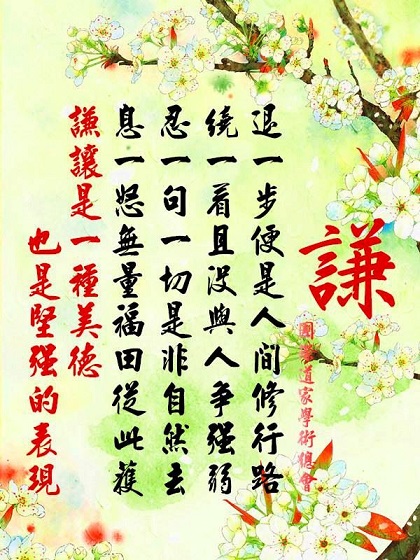 謙
道家學術總會
退一步便是人間修行路
繞一着且没與人爭强弱
忍一句一切是非自然去
息一怒無量福田從此獲
謙讓是一種美德
也是堅强的表現